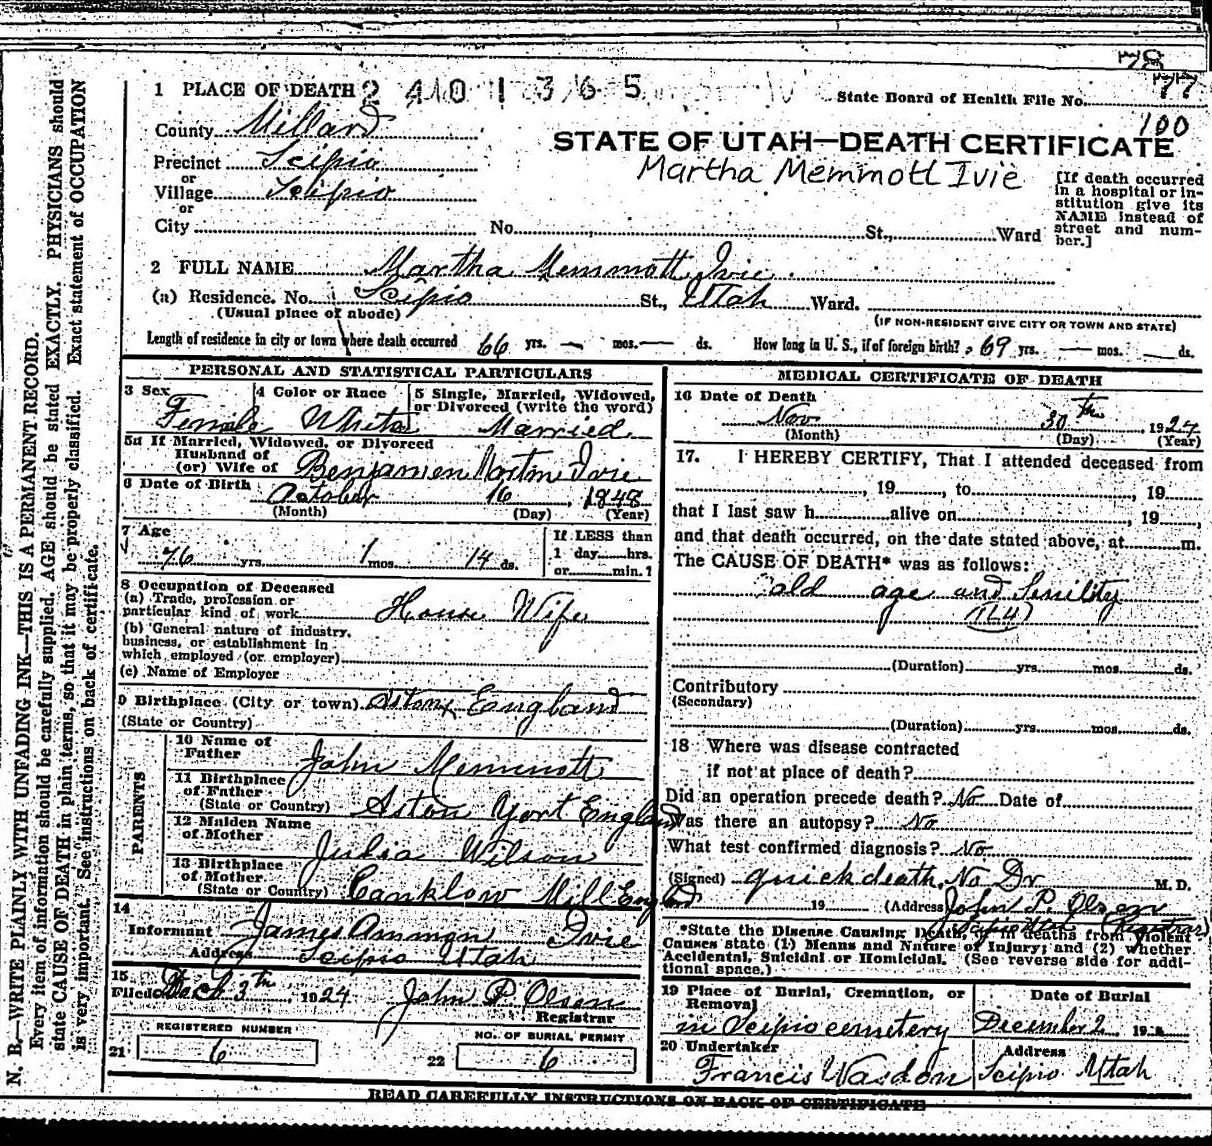 78
77
100
1 PLACE OF DEATH 2 4 0 1 3 6 5
State Board of Health File No.
County Millard
STATE OF UTAH—DEATH CERTIFICATE
Martha Memmott Ivie
Precinct Scipio
or
Village Scipio
or
City No. St., Ward
[If death occurred in a hospital or institution give its NAME instead of street and number.]
2 FULL NAME Martha Memmott Ivie
(a) Residence. No. Scipio St., Utah Ward.
(Usual place of abode)
(IF NON-RESIDENT GIVE CITY OR TOWN AND STATE)
Length of residence in city or town where death occurred 66 yrs. — mos. — ds. How long in U. S., if of foreign birth? 69 yrs. — mos. — ds.
PERSONAL AND STATISTICAL PARTICULARS
3 Sex 4 Color or Race 5 Single, Married, Widowed,
or Divorced (write the word)
Female White Married
5a If Married, Widowed, or Divorced
Husband of
(or) Wife of Benjamen Morton Ivie
6 Date of Birth October 16, 1848
(Month) (Day) (Year)
7 Age
76 yrs. 1 mos. 14 ds.
If LESS than
1 day hrs.
or min.?
8 Occupation of Deceased
(a) Trade, profession or
particular kind of work House Wife
(b) General nature of industry,
business, or establishment in
which employed (or employer)
(c) Name of Employer
9 Birthplace (City or town) Aston England
(State or Country)
PARENTS
10 Name of
Father John Memmott
11 Birthplace
of Father
(State or Country) Aston York England
12 Maiden Name
of Mother Julia Wilson
13 Birthplace
of Mother
(State or Country) Canklow Mill England
14
Informant James Ammon Ivie
Address Scipio Utah
15
Filed Dech 3th, 1924 John P. Olsen
Registrar
REGISTERED NUMBER
21 6
NO. OF BURIAL PERMIT
22 6
MEDICAL CERTIFICATE OF DEATH
16 Date of Death
Nov 30th, 1924
(Month) (Day) (Year)
17. I HEREBY CERTIFY, That I attended deceased from
, 19 , to , 19
that I last saw h alive on , 19 ,
and that death occurred, on the date stated above, at m.
The CAUSE OF DEATH* was as follows:
old age and Senility
(164)
(Duration) yrs. mos. ds.
Contributory
(Secondary)
(Duration) yrs. mos. ds.
18 Where was disease contracted
if not at place of death?
Did an operation precede death? No Date of
Was there an autopsy? No
What test confirmed diagnosis? No
(Signed) quick death. No Dr M. D.
19 (Address John P. Olsen
Registrar)
*State the Disease Causing Death, or deaths from Violent
Causes state (1) Means and Nature of Injury; and (2) whether
Accidental, Suicidal or Homicidal. (See reverse side for addi-
tional space.)
19 Place of Burial, Cremation, or
Removal
in Scipio cemetery
Date of Burial
December 2 19
20 Undertaker
Francis Wasdon
Address
Scipio Utah
READ CAREFULLY INSTRUCTIONS ON BACK OF CERTIFICATE
N. B.—WRITE PLAINLY WITH UNFADING INK—THIS IS A PERMANENT RECORD.
Every item of information should be carefully supplied. AGE should be stated EXACTLY. PHYSICIANS should
state CAUSE OF DEATH in plain terms, so that it may be properly classified. Exact statement of OCCUPATION
is very important. See instructions on back of certificate.